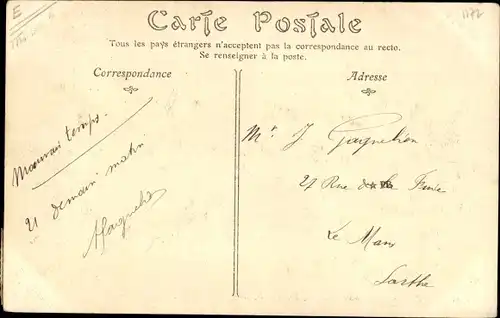 E
1172
Carte Postale
Tous les pays étrangers n'acceptent pas la correspondance au recto.
Se renseigner à la poste.
Correspondance
Adresse
Mauvais temps.
21 demain matin
Mr. J
27 Rue
Le Mans
Sarthe